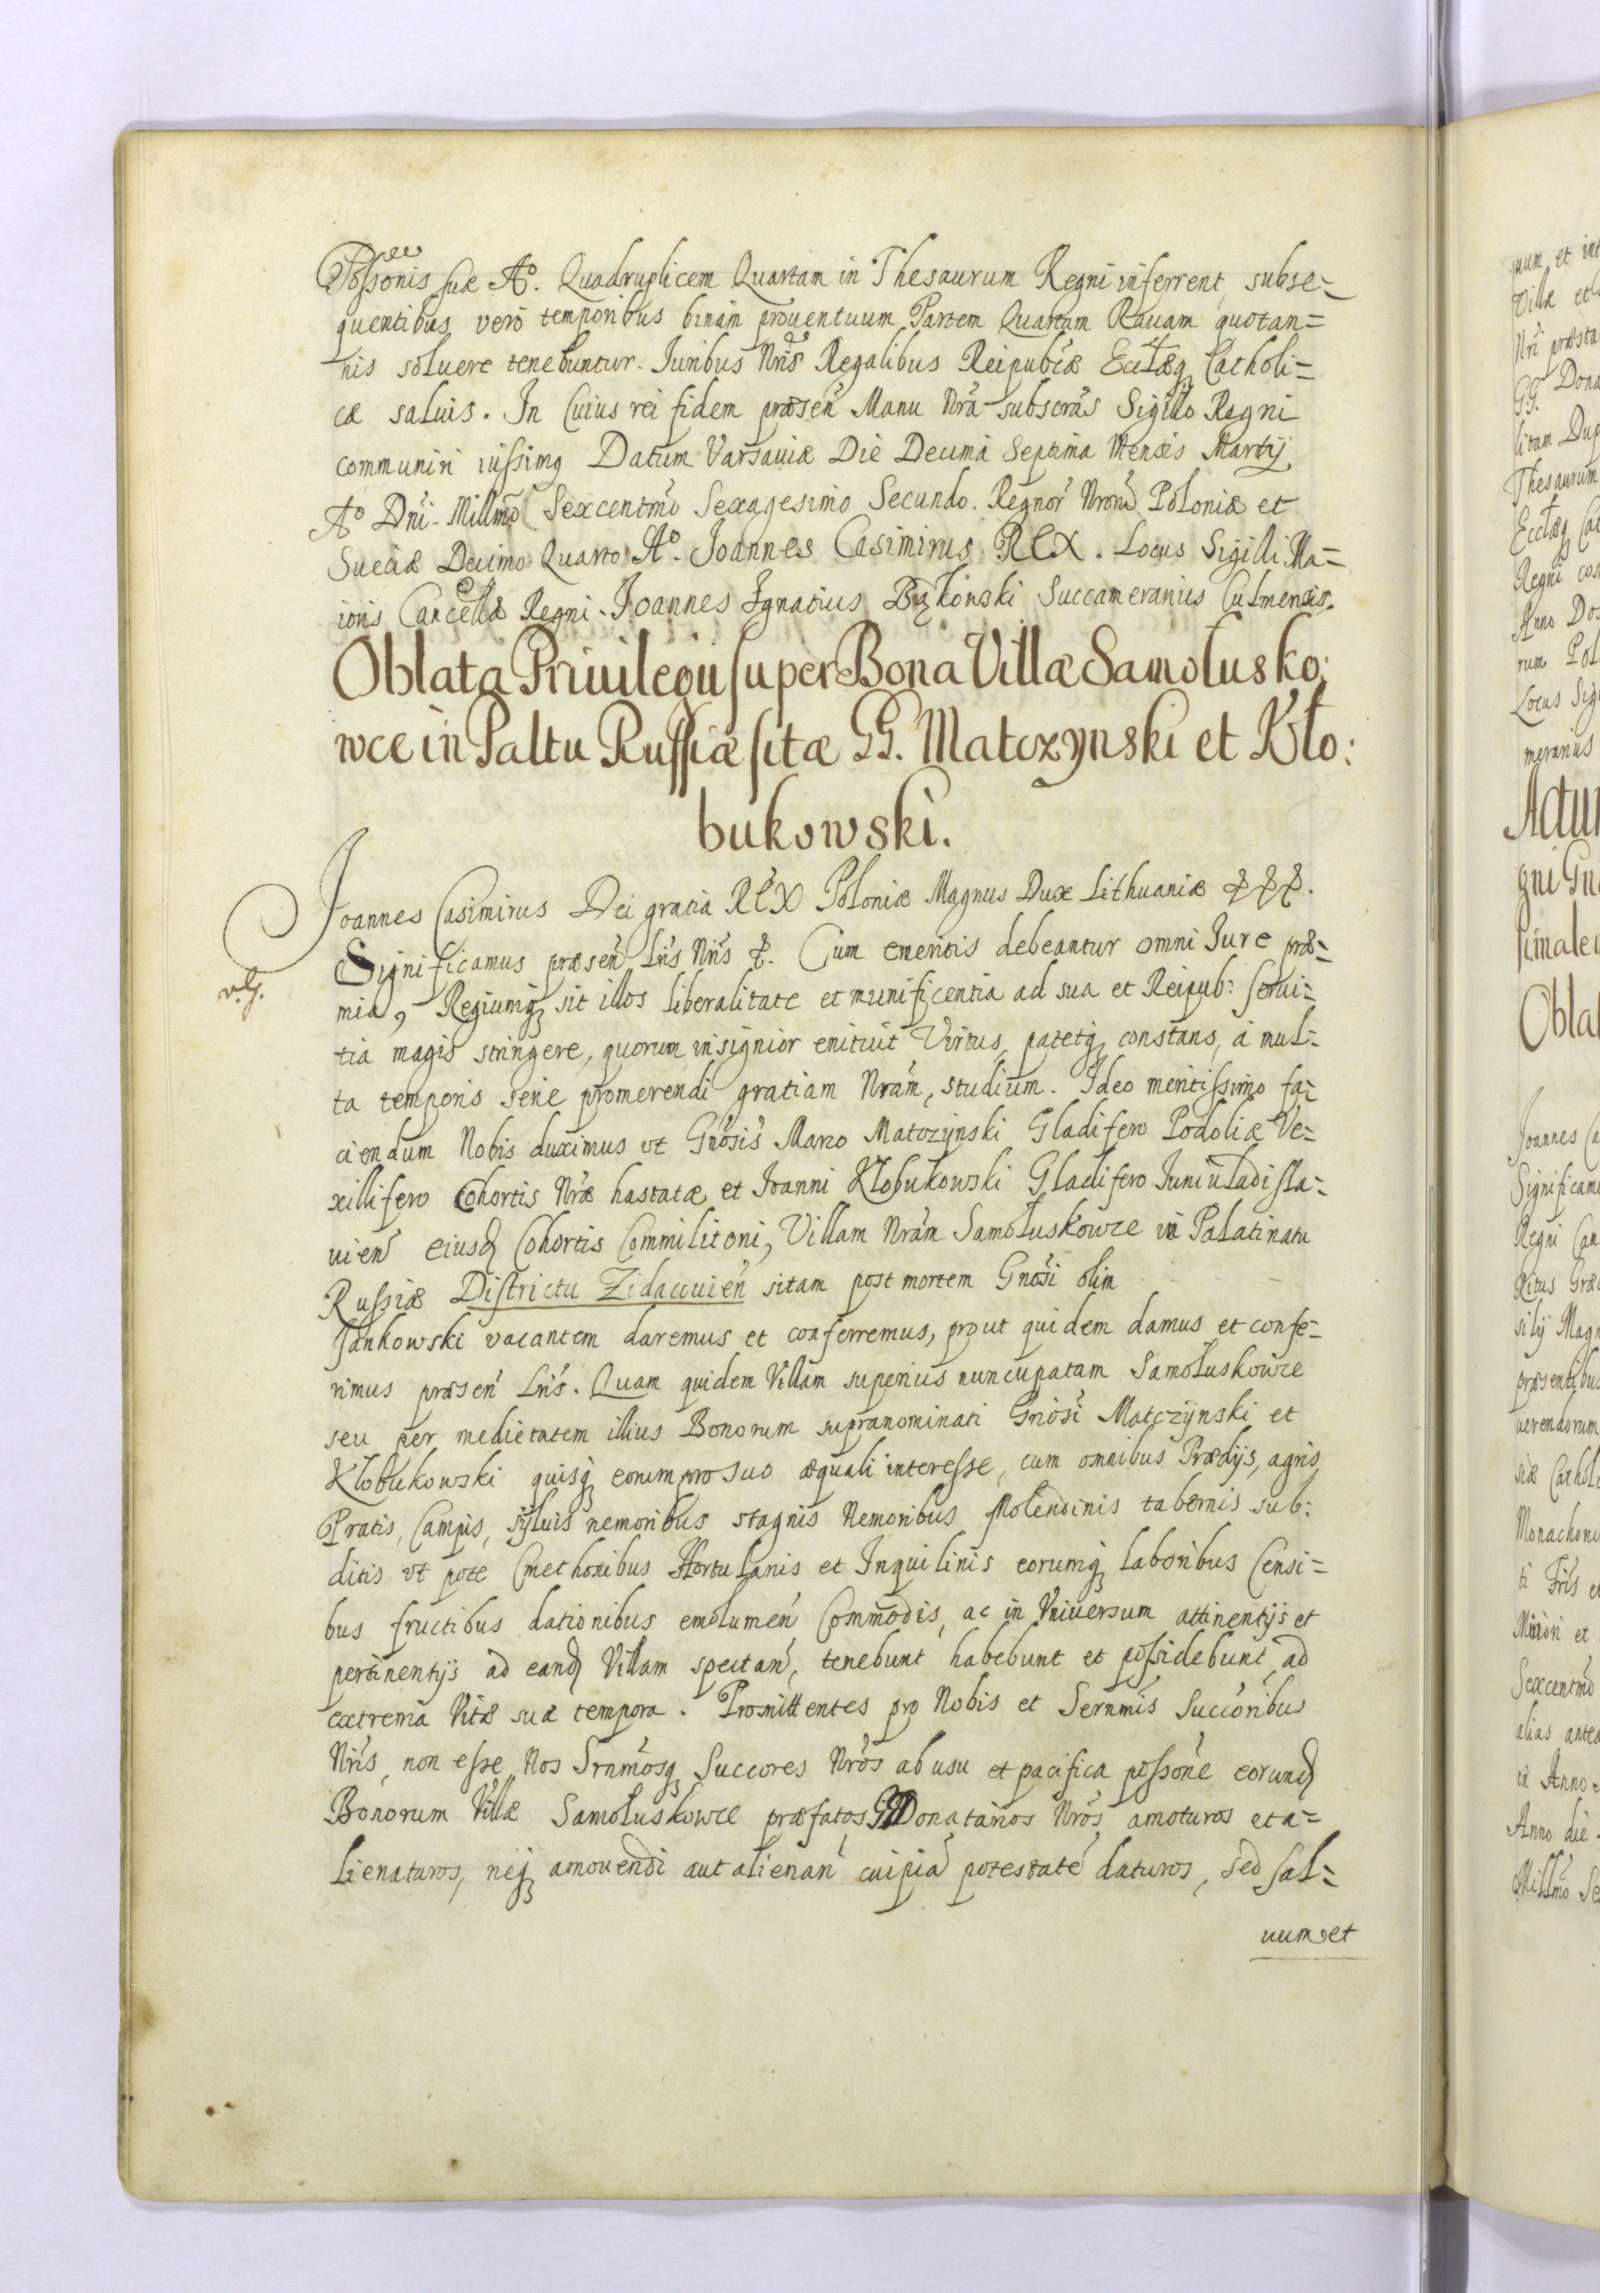 Possonis suæ Aº. Quadruplicem Quartam in Thesaurum Regni inferrent, subse=
quentibus vero temporibus binam prouentuum Partem Quartam Rauam quotan=
nis soluere tenebuntur. Iuribus Nris Regalibus Reipubcæ Ecclæq Catholi=
cæ saluis. In Cuius rei fidem præsen Manu Nra subscras Sigillo Regni
communiri iussimq Datum Varsauiæ Die Decima Septima Mensis Martij
Aº Dni. Millmo Sexcentmo Sexagesimo Secundo. Regnor Nroru Poloniæ et
Sueciæ Decimo Quarto Aº. Joannes Casimirus REX. Locus Sigilli Ma=
ioris Cancellæ Regni. Joannes Ignatius Bąkowski Succamerarius Culmensis.
Oblata Priuilegij super Bona Villæ Samolusko:
wce in Paltu Russiæ sitæ GG. Matczynski et Kło:
bukowski.
Joannes Casimirus Dei gratia REX Poloniæ Magnus Dux Lithuaniæ &&&.
Significamus præsen Lris Nris &. Cum emeritis debeantur omni Jure præ=
mia, Regiumq sit illos liberalitate et munificentia ad sua et Reipub: serui=
tia magis stringere, quorum insignior enituit Virtus, patetq constans, a mul=
ta temporis serie promerendi gratiam Nram, studium. Ideo meritissimo fa=
ciendum Nobis duximus vt Gnosis Marco Matczynski Gladifero Podoliæ Ve=
xillifero Cohortis Nræ hastatæ et Joanni Kłobukowski Gladifero Juniuladisla=
uien eiusd Cohortis Commilitoni, Villam Nram Samołuskowce in Palatinatu
Russiæ Districtu Zidaccuien sitam post mortem Gnosi olim
Jankowski vacantem daremus et conferremus, prout quidem damus et confe=
rimus præsen Lris. Quam quidem Villam superius nuncupatam Samołuskowce
seu per medietatem illius Bonorum supranominati Gnosi Matczynski et
Kłobukowski quisq eorum pro suo æquali interesse, cum omnibus Prædijs, agris,
Pratis, Campis, syluis nemoribus stagnis Nemoribus Molendinis tabernis sub:
ditis vt pote Cmethonibus Hortulanis et Inquilinis eorumq laboribus Censi=
bus fructibus dationibus emolumen Commodis, ac in Vniuersum attinentijs et
pertinentijs ad eand Villam spectan, tenebunt habebunt et possidebunt, ad
extrema Vitæ suæ tempora. Promittentes pro Nobis et Sernmis Succoribus
Nris, non esse Nos Srnmosq Succores Nros ab usu et pacifica possone eorund
Bonorum Villæ Samołuskowce præfatos GG Donatarios Nros amoturos et a=
lienaturos, neq amouendi aut alienan cuipia potestate daturos, sed sal=
uum et